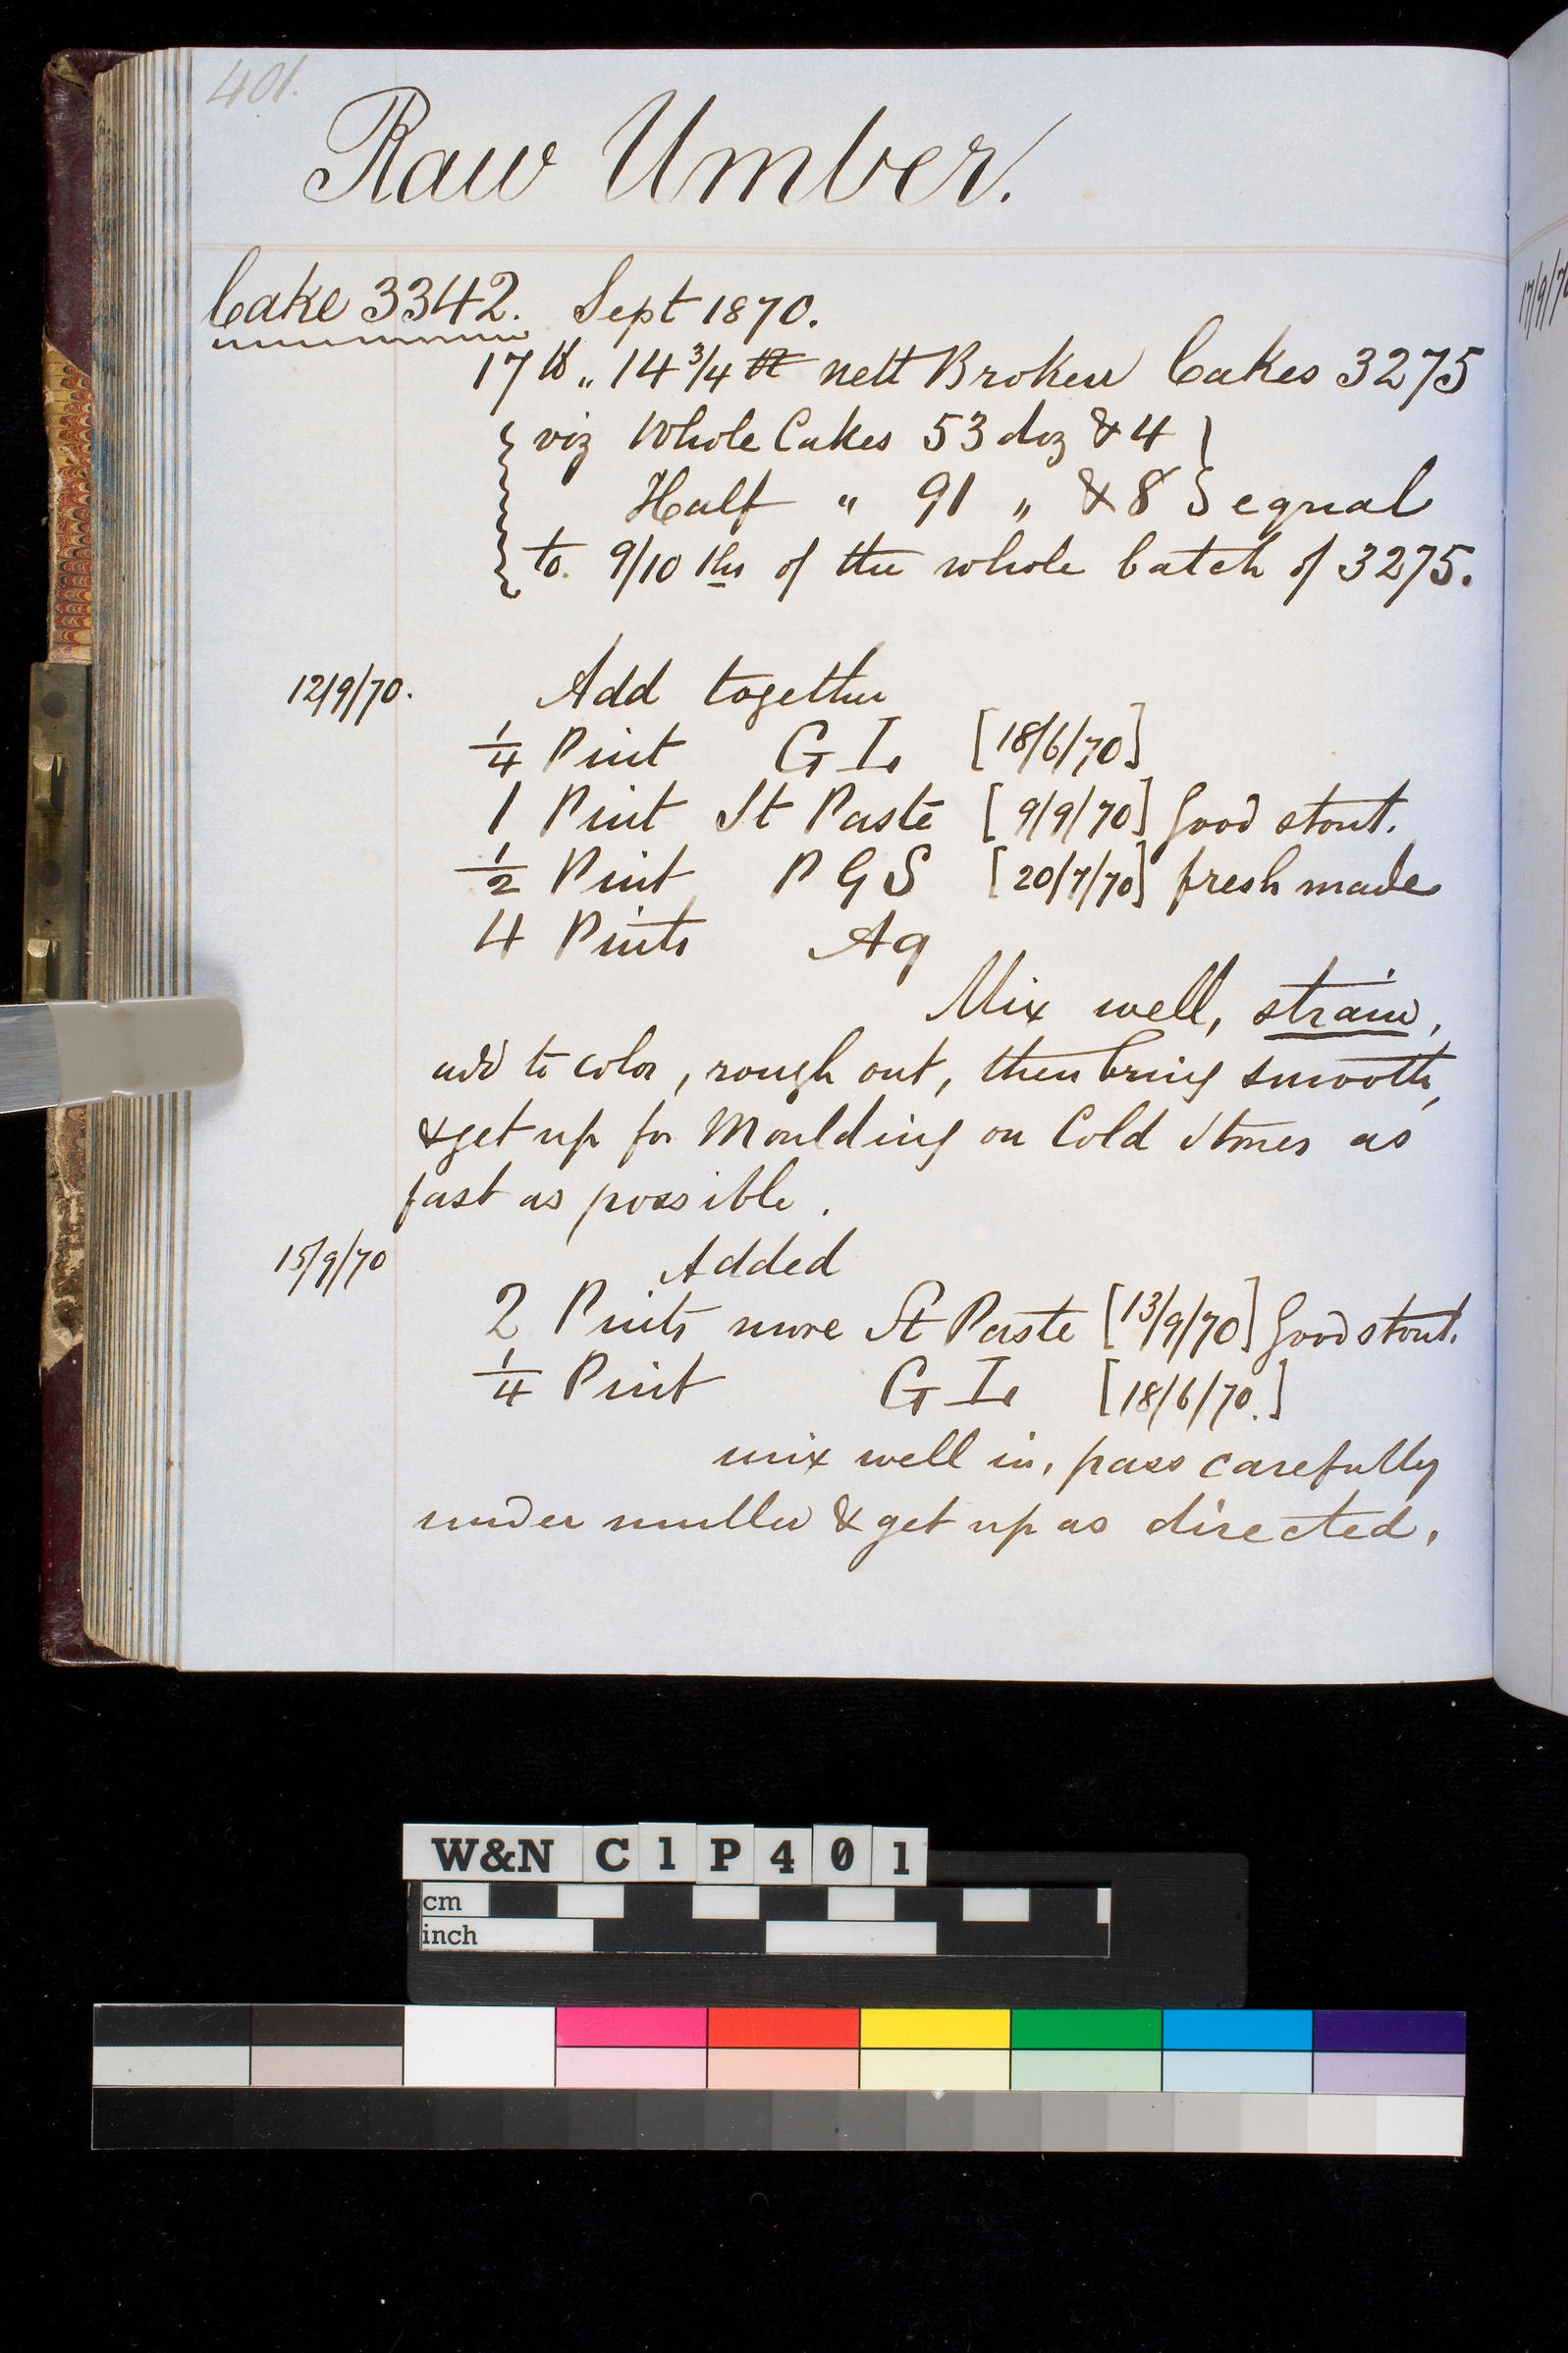 401.
Raw Umber.
Cake 3342. Sept 1870.
17 lb „ 14 3/4 nett Broken Cakes 3275
viz Whole Cakes 53 doz & 4
Half " 91 " & 8 equal
to 9/10 ths of the whole batch of 3275.
12/9/70. Add together
1/4 Pint G I. [18/6/70]
1 Pint St Paste [9/9/70] Good stout.
1/2 Pint P G S [20/7/70] fresh made
4 Pints Aq
Mix well, strain,
add to color, rough out, then bring smooth,
& get up for Moulding on Cold Stones as
fast as possible.
15/9/70 Added
2 Pints more St Paste [13/9/70] Good stout.
1/4 Pint G I. [18/6/70.]
mix well in, pass carefully
under muller & get up as directed.
17/9/70
W&N C1P401
cm
inch